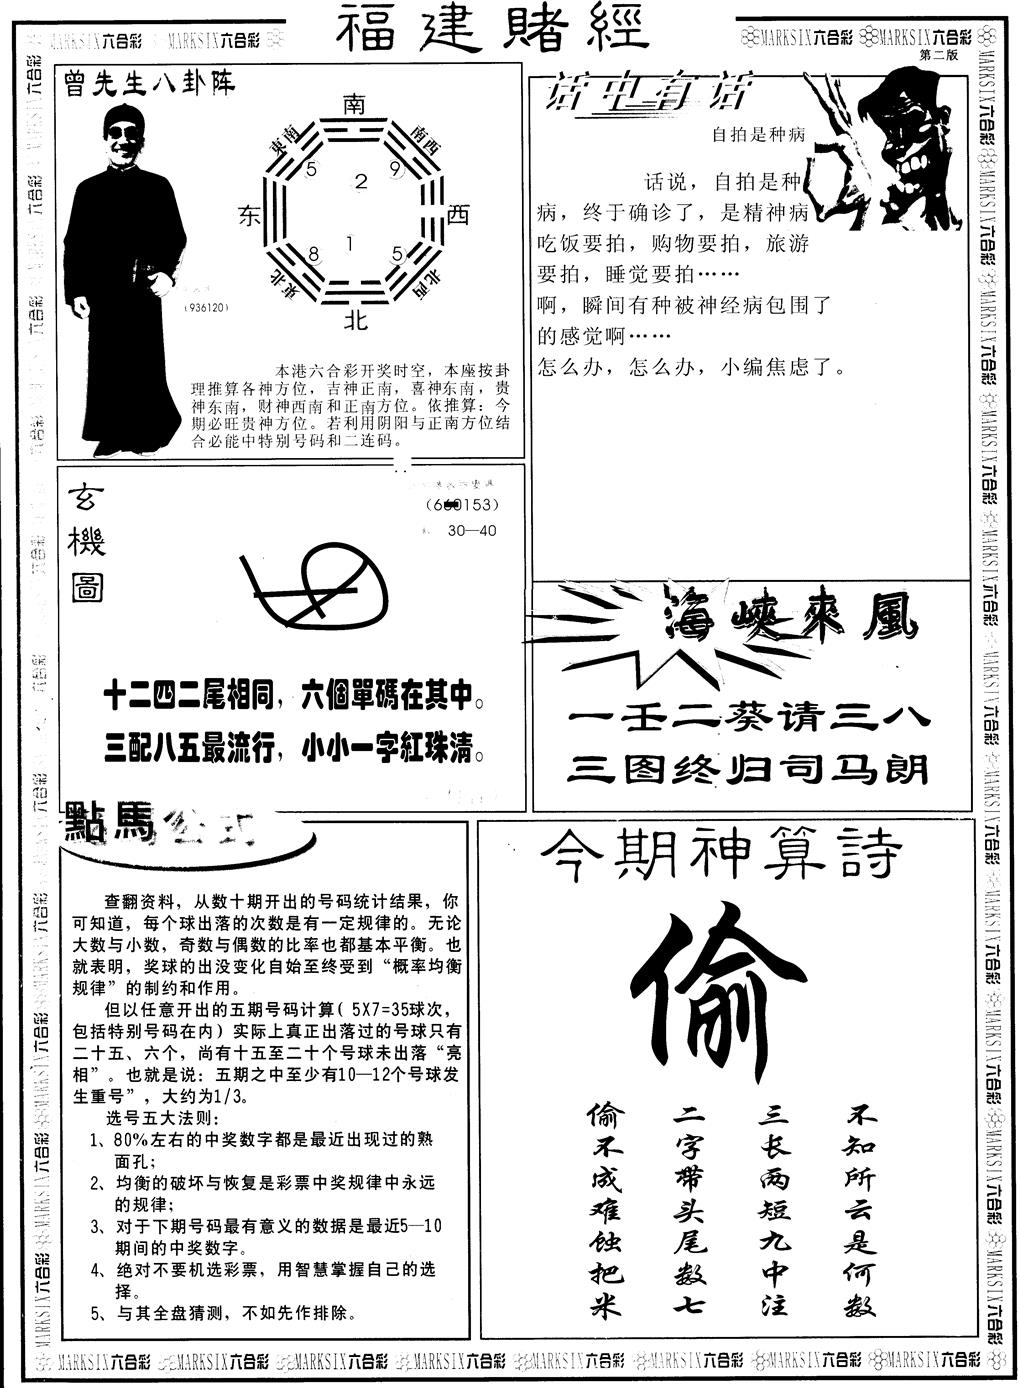 福建賭經
MARKSIX六合彩 MARKSIX六合彩
MARKSIX六合彩 MARKSIX六合彩
第二版
曾先生八卦阵
南
東南 南西
5 2 9
东 西
8 1 5
東北 北西
北
(936120)
本港六合彩开奖时空，本座按卦
理推算各神方位，吉神正南，喜神东南，贵
神东南，财神西南和正南方位。依推算：今
期必旺贵神方位。若利用阴阳与正南方位结
合必能中特别号码和二连码。
话中有话
自拍是种病
话说，自拍是种
病，终于确诊了，是精神病
吃饭要拍，购物要拍，旅游
要拍，睡觉要拍……
啊，瞬间有种被神经病包围了
的感觉啊……
怎么办，怎么办，小编焦虑了。
玄機圖
30—40
十二四二尾相同，六個單碼在其中。
三配八五最流行，小小一字紅珠清。
海峽來風
一壬二葵请三八
三图终归司马朗
點馬公式
查翻资料，从数十期开出的号码统计结果，你
可知道，每个球出落的次数是有一定规律的。无论
大数与小数，奇数与偶数的比率也都基本平衡。也
就表明，奖球的出没变化自始至终受到“概率均衡
规律”的制约和作用。
但以任意开出的五期号码计算( 5X7=35球次，
包括特别号码在内) 实际上真正出落过的号球只有
二十五、六个，尚有十五至二十个号球未出落“亮
相”。也就是说：五期之中至少有10—12个号球发
生重号”，大约为1/3。
选号五大法则：
1、80%左右的中奖数字都是最近出现过的熟
面孔；
2、均衡的破坏与恢复是彩票中奖规律中永远
的规律；
3、对于下期号码最有意义的数据是最近5—10
期间的中奖数字。
4、绝对不要机选彩票，用智慧掌握自己的选
择。
5、与其全盘猜测，不如先作排除。
今期神算詩
偷
偷不成难蚀把米
二字带头尾数七
三长两短九中注
不知所云是何数
MARKSIX六合彩 MARKSIX六合彩 MARKSIX六合彩 MARKSIX六合彩 MARKSIX六合彩 MARKSIX六合彩 MARKSIX六合彩 MARKSIX六合彩